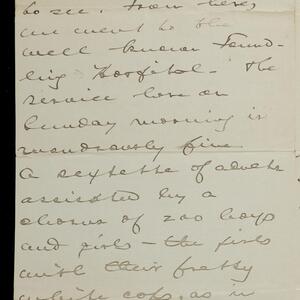 to see. From here,
we went to the
well known Found-
ling Hospital. The
service here on
Sunday morning is
wondrously fine
A sextette of adults
assisted by a
chorus of 200 boys
and girls – the girls
with their pretty
white caps, as in